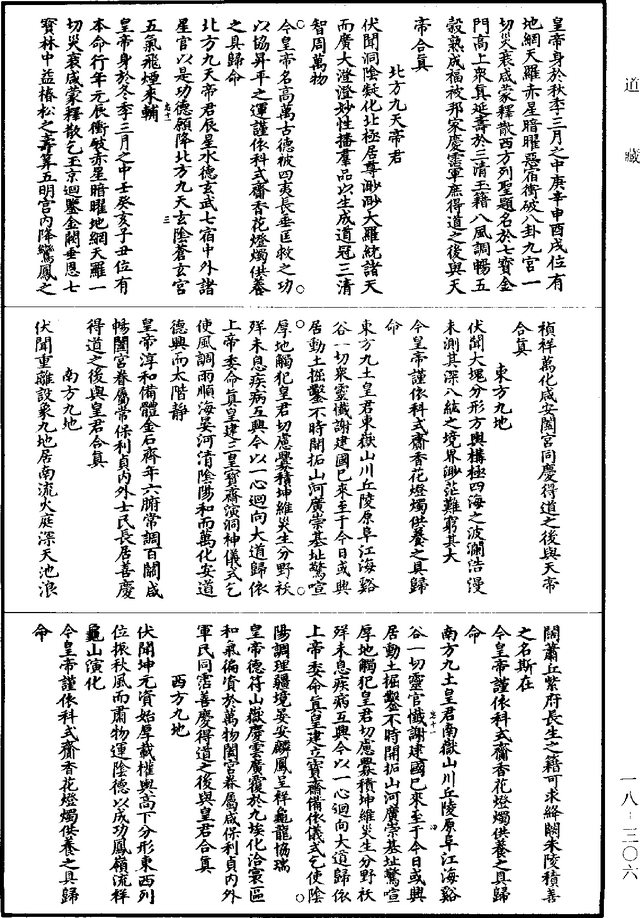 道藏
皇帝身於秋季三月之中庚辛申酉戌位有
地網天羅赤星暗曜惡宿衝破八卦九宮一
切災衰咸蒙釋散西方列聖題名於七寶金
門高上衆真延壽於三清玉籍八風調暢五
穀熟成福被邦家慶霑軍庶得道之後與天
帝合真
北方九天帝君
伏聞洞陰凝化北極居尊渺渺大羅統諸天
而廣大澄澄妙性播羣品以生成道冠三清
智周萬物
今皇帝名高萬古德被四夷長垂匡救之功
以協昇平之運謹依科式齋香花燈燭供養
之具歸命
北方九天帝君辰星水德玄武七宿中外諸
星官以是功德願降北方九天玄陰蒼玄宮
五氣飛煙來輔
皇帝身於冬季三月之中壬癸亥子丑位有
本命行年元辰衝破赤星暗曜地網天羅一
切災衰咸蒙釋散乞玉京迴鑒金闕垂恩七
寶林中益椿松之壽算五明宮內降鸞鳳之
禎祥萬化咸安闔宮同慶得道之後與天帝
合真
東方九地
伏聞大塊分形方輿構極四海之波瀾浩漫
未測其深八紘之境界渺茫難窮其大
今皇帝謹依科式齋香花燈燭供養之具歸
命
東方九土皇君東嶽山川丘陵原阜江海谿
谷一切衆靈懺謝建國已來至于今日或興
居動土掘鑿不時開拓山河廣崇基址驚喧
厚地觸犯皇君切慮釁積坤維災生分野祅
殍未息疾病互興今以一心迴向大道歸依
上帝委命真皇建三皇寶齋演洞神儀式乞
使風調雨順海晏河清陰陽和而萬化安道
德興而太階靜
皇帝淳和備體金石齊年六腑常調百關咸
暢闔宮眷屬常保利貞內外士民長居善慶
得道之後與皇君合真
南方九地
伏聞重離設象九地居南流火庭深天池浪
闊蕭丘紫府長生之籍可求絳闕朱陵積善
之名斯在
今皇帝謹依科式齋香花燈燭供養之具歸
命
南方九土皇君南嶽山川丘陵原阜江海谿
谷一切靈官懺謝建國已來至于今日或興
居動土掘鑿不時開拓山河廣崇基址驚喧
厚地觸犯皇君切慮釁積坤維災生分野祅
殍未息疾病互興今以一心迴向大道歸依
上帝委命真皇建立寶齋備依儀式乞使陰
陽調理疆境晏安麟鳳呈祥龜龍協瑞
皇帝德符山嶽慶雲廣覆於九埃化洽寰區
和氣倫資於萬物闔宮眷屬咸保利貞內外
軍民同霑善慶得道之後與皇君合真
西方九地
伏聞坤元資始厚載權輿高下分形東西列
位振秋風而肅物運陰德以成功鳳嶺流祥
龜山演化
今皇帝謹依科式齋香花燈燭供養之具歸
命
一八－三〇六